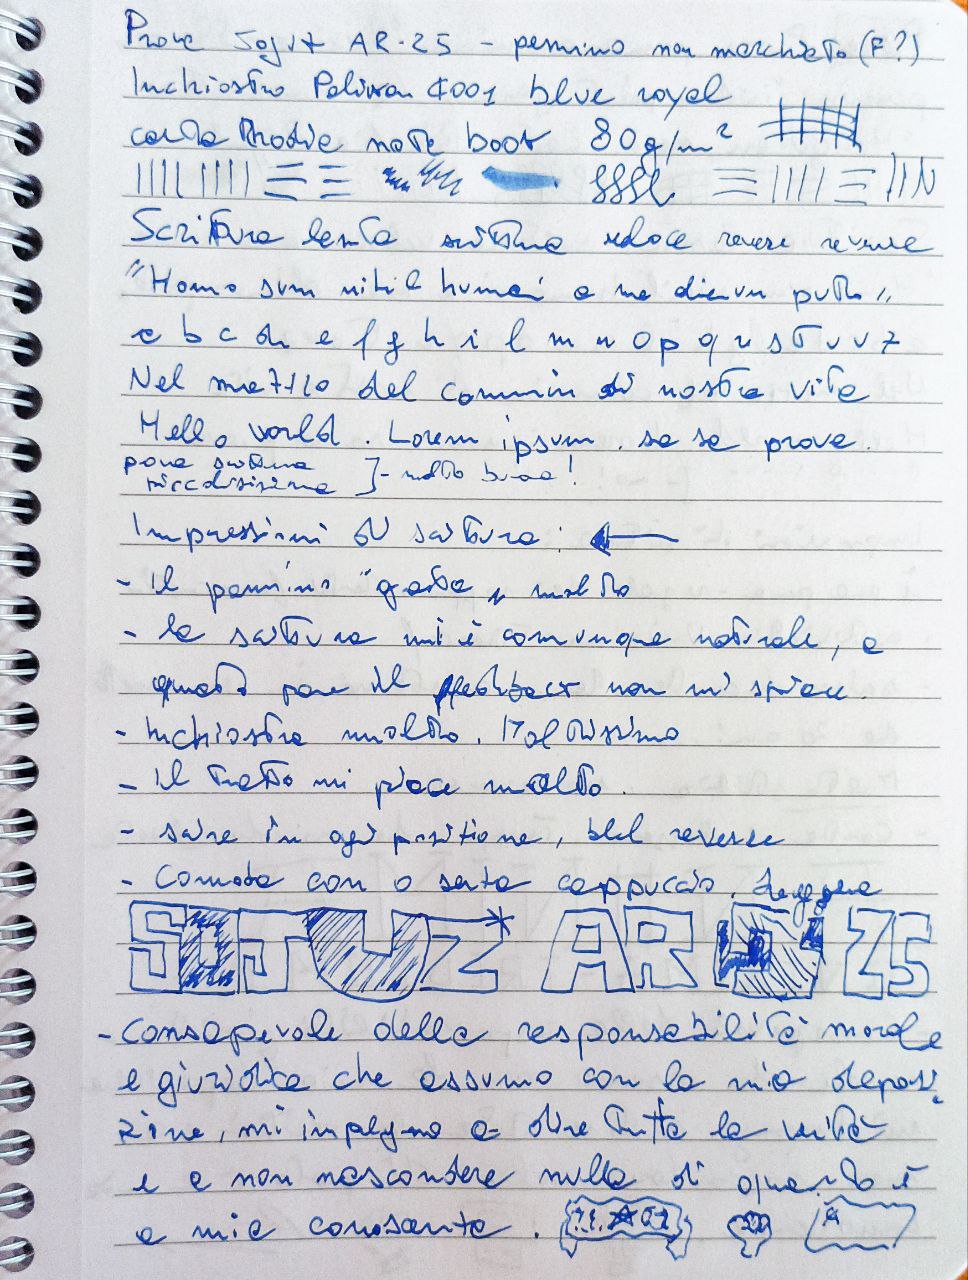 Prova Sojuz AR-25 - pennino non marchiato (F?)
Inchiostro Pelikan 4001 blue royal
carta Rhodia note book 80g/m²
Scrittura lenta scrittura veloce reverse reverse
"Homo sum nihil humani a me alienum puto"
a b c d e f g h i l m n o p q r s t u v z
Nel mezzo del cammin di nostra vita
Hello world. Lorem ipsum. sa sa prova.
prova scrittura
piccolissima ]- molto buona!
Impressioni di scrittura:
- Il pennino "gratta" molto
- la scrittura mi è comunque naturale, e
questo pone il feedback non mi spiace.
- Inchiostra molto. Moltissimo
- Il tratto mi piace molto.
- scrive in ogni posizione, bel reverse
- Comoda con o senza cappuccio. Leggera
SOJUZ AR 25
- Consapevole della responsabilità morale
e giuridica che assumo con la mia deposi
zione, mi impegno a dire tutta la verità
e a non nascondere nulla di quanto è
a mia conoscenza.